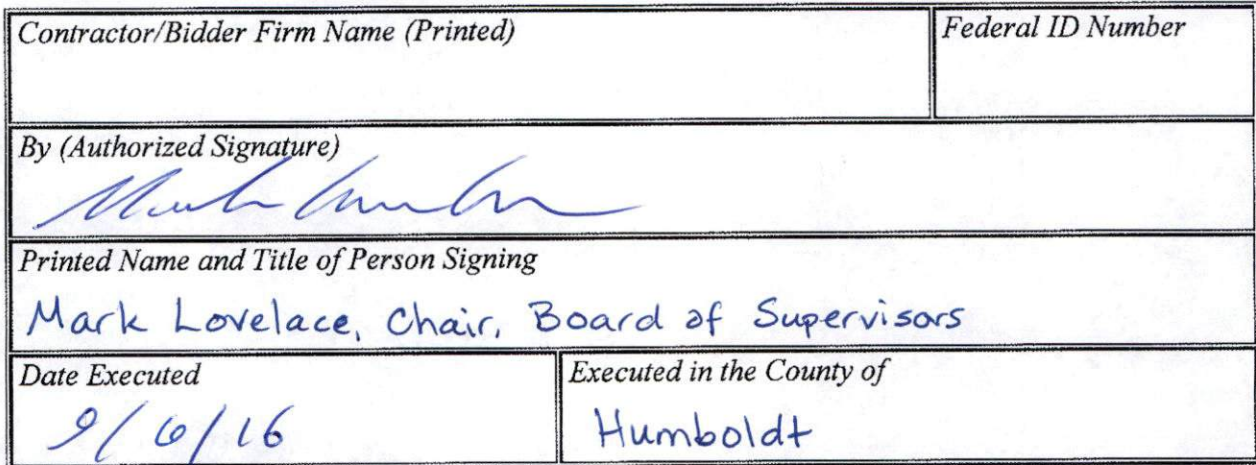 Contractor/Bidder Firm Name (Printed)
Federal ID Number
By (Authorized Signature)
Printed Name and Title of Person Signing
Mark Lovelace, Chair, Board of Supervisors
Date Executed
Executed in the County of
9/6/16
Humboldt